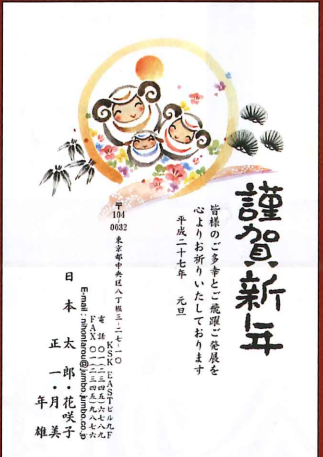 謹賀新年
皆様のご多幸とご飛躍ご発展を
心よりお祈りいたしております
平成二十七年　元旦
〒104-0032　東京都中央区八丁堀三-二七-一〇
KSK EASTビル九F
電話〇一二三(四五)六七八九
FAX〇一二三(四五)九八七六
E-mail : nihontarou@jumbo.jumbo.co.jp
日本　太郎・花咲子
正一・月美
年雄